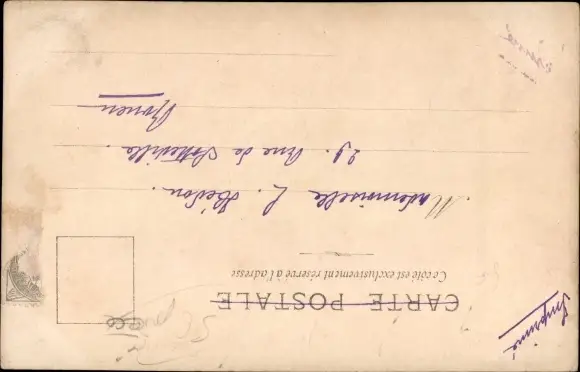 CARTE POSTALE
Ce côté est exclusivement réservé à l'adresse
Imprimé
Mademoiselle L.
29. Rue de Sotteville.
Rouen